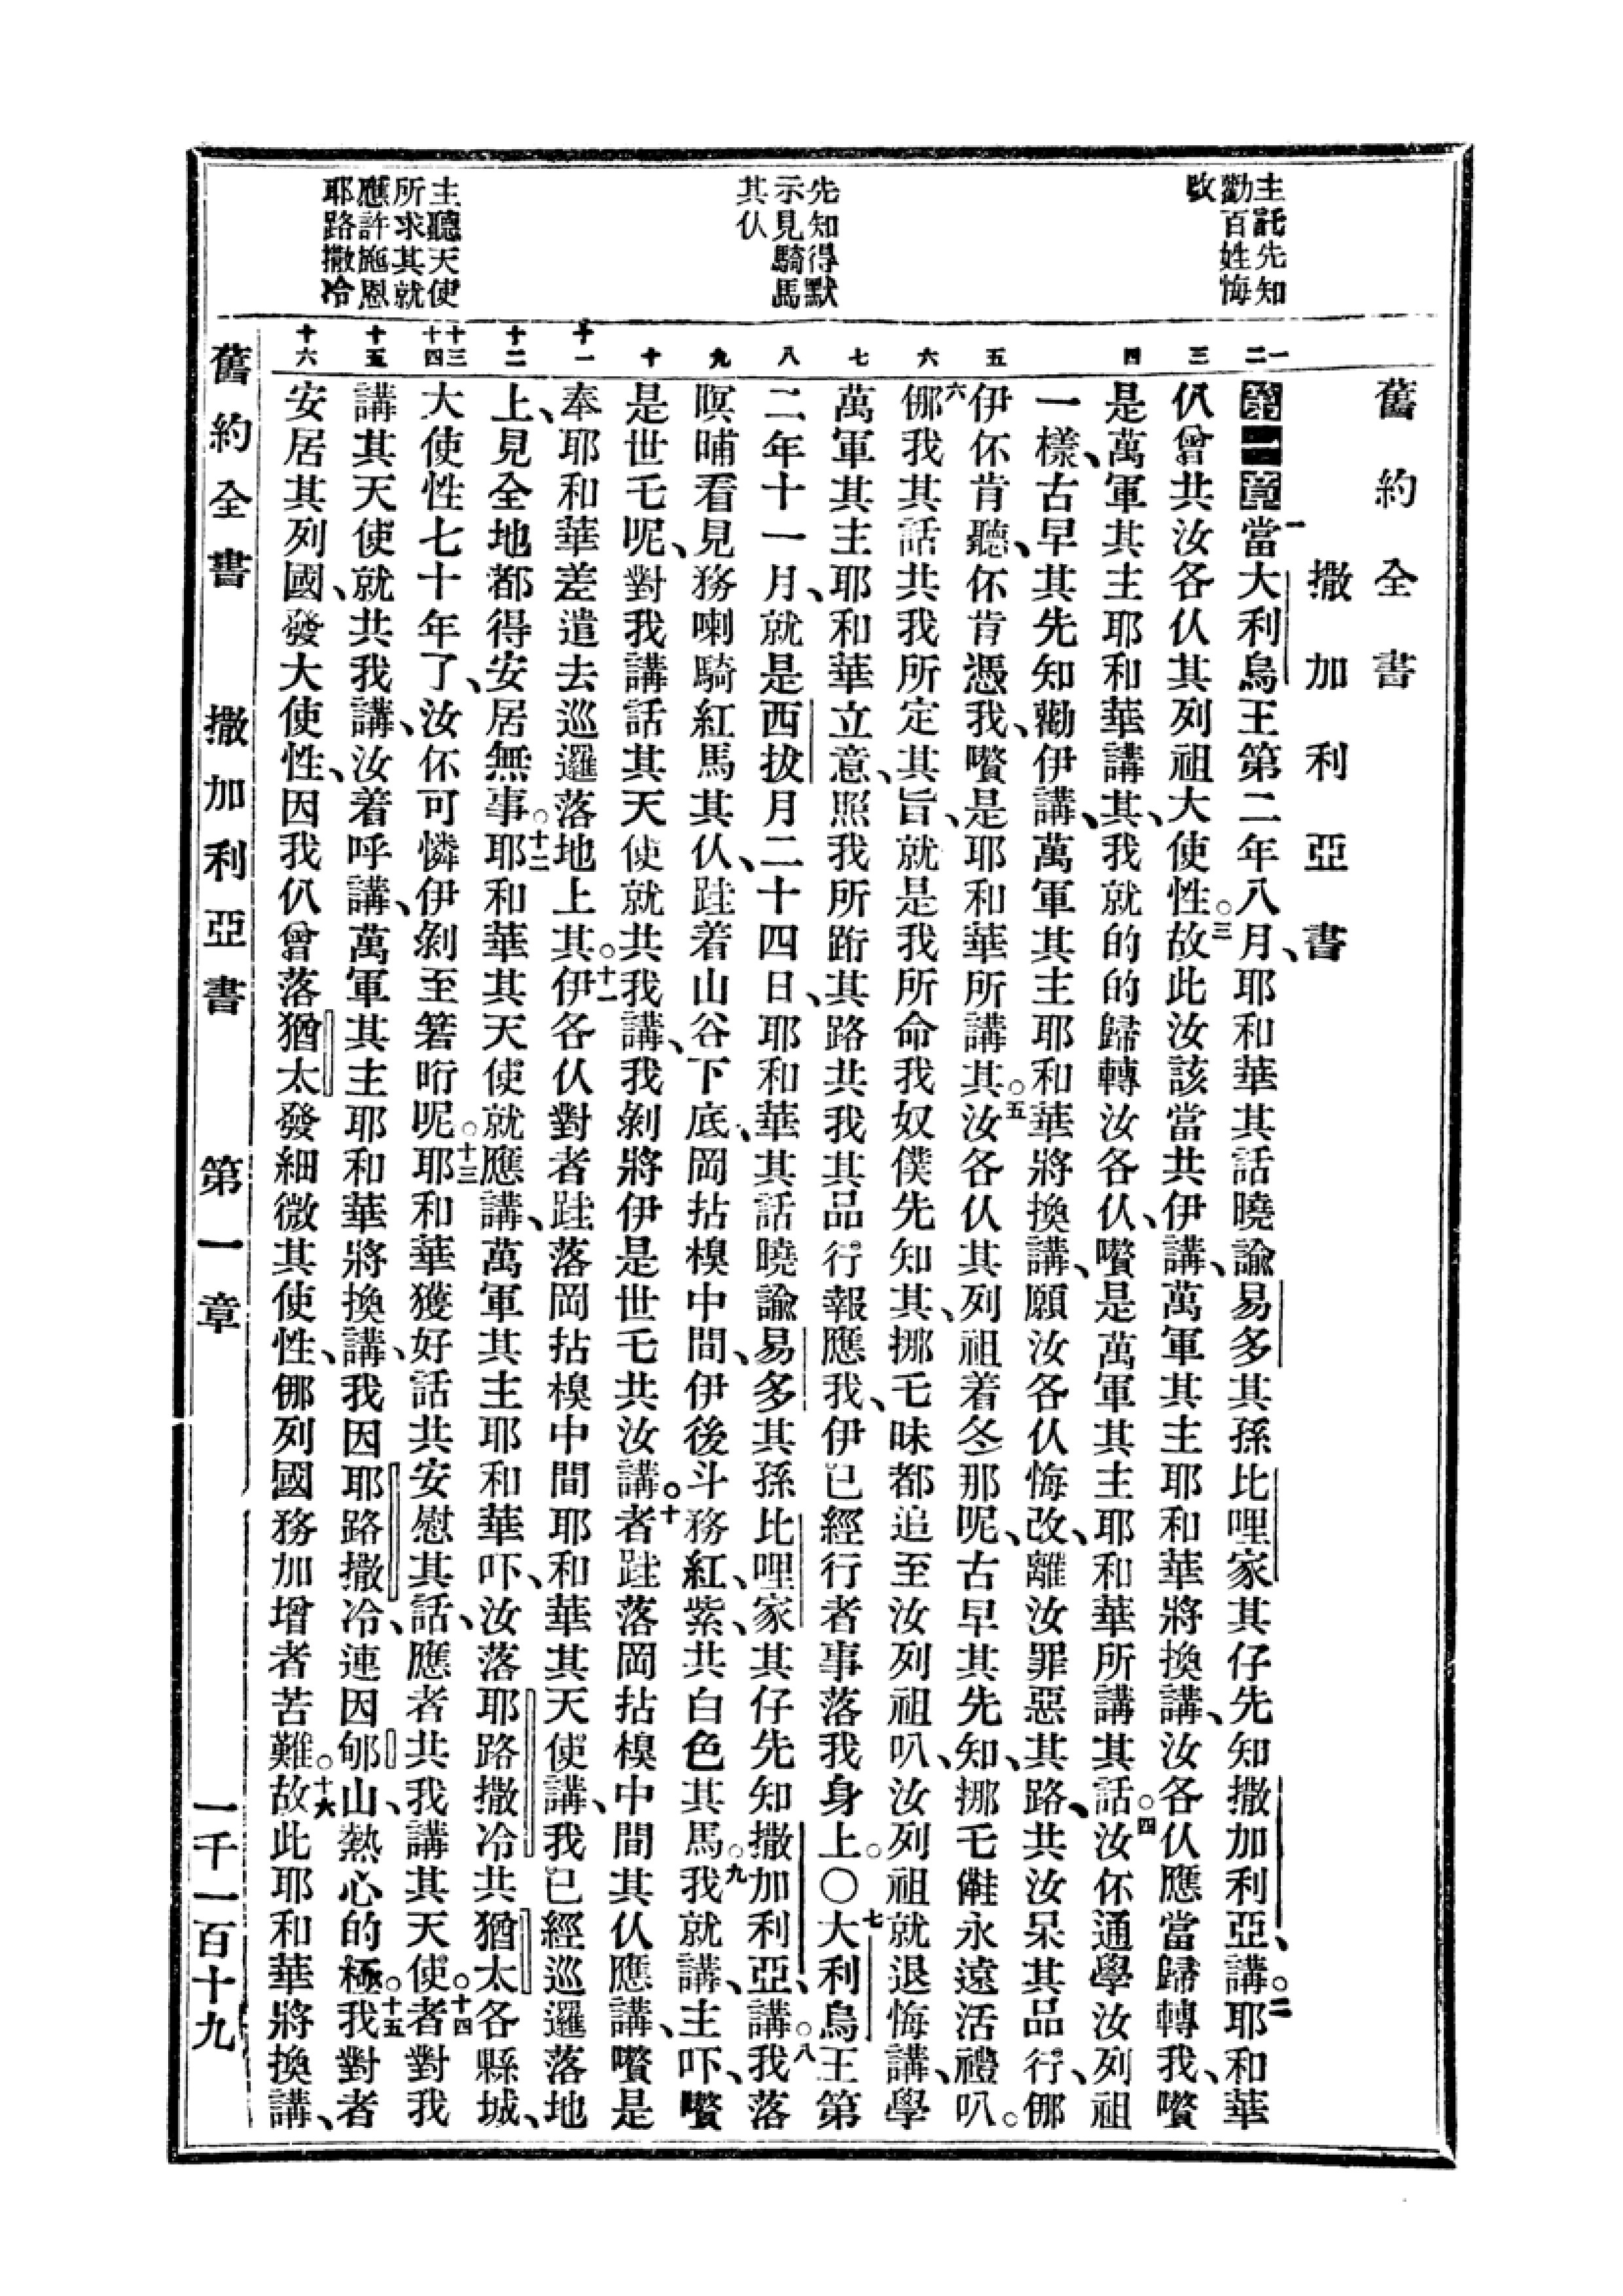 舊約全書
撒加利亞書
主託先知
勸百姓悔
改
先知得默
示見騎馬
其仈
主聽天使
所求其就
應許施恩
耶路撒冷
一 二 三 四 五 六 七 八 九 十 十一 十二 十三 十四 十五 十六
第一章一當大利烏王第二年八月、耶和華其話曉諭易多其孫比哩家其仔先知撒加利亞、講。二耶和華
仈曾共汝各仈其列祖大使性。三故此汝該當共伊講、萬軍其主耶和華將換講、汝各仈應當歸轉我、囋
是萬軍其主耶和華講其、我就的的歸轉汝各仈、囋是萬軍其主耶和華所講其話。四汝伓通學汝列祖
一樣、古早其先知勸伊講、萬軍其主耶和華將換講、願汝各仈悔改、離汝罪惡其路、共汝呆其品行、㑚
伊伓肯聽、伓肯憑我、囋是耶和華所講其。五汝各仈其列祖着冬那呢、古早其先知、挪乇㒕永遠活禮叭。
六㑚我其話共我所定其旨、就是我所命我奴僕先知其、挪乇昧都追至汝列祖叭、汝列祖就退悔講、學
萬軍其主耶和華立意、照我所跡其路共我其品行報應我、伊已經行者事落我身上。〇七大利烏王第
二年十一月、就是西拔月二十四日、耶和華其話曉諭易多其孫比哩家其仔先知撒加利亞、講。八我落
暝晡看見務喇騎紅馬其仈、跬着山谷下底、岡拈模中間、伊後斗務紅、紫、共白色其馬。九我就講、主吓、囋
是世乇呢、對我講話其天使就共我講、我剝將伊是世乇共汝講。十者跬落岡拈模中間其仈應講、囋是
奉耶和華差遣去巡邏落地上其。十一伊各仈對者跬落岡拈模中間耶和華其天使講、我已經巡邏落地
上、見全地都得安居無事。十二耶和華其天使就應講、萬軍其主耶和華吓、汝落耶路撒冷共猶太各縣城、
大使性七十年了、汝伓可憐伊剝至㝧昕呢。十三耶和華獲好話共安慰其話、應者共我講其天使。十四者對我
講其天使就共我講、汝着呼講、萬軍其主耶和華將換講、我因耶路撒冷、連因郇山、熱心的極。十五我對者
安居其列國、發大使性、因我仈曾落猶太發細微其使性、㑚列國務加增者苦難。十六故此耶和華將換講、
舊約全書 撒加利亞書 第一章 一千一百十九